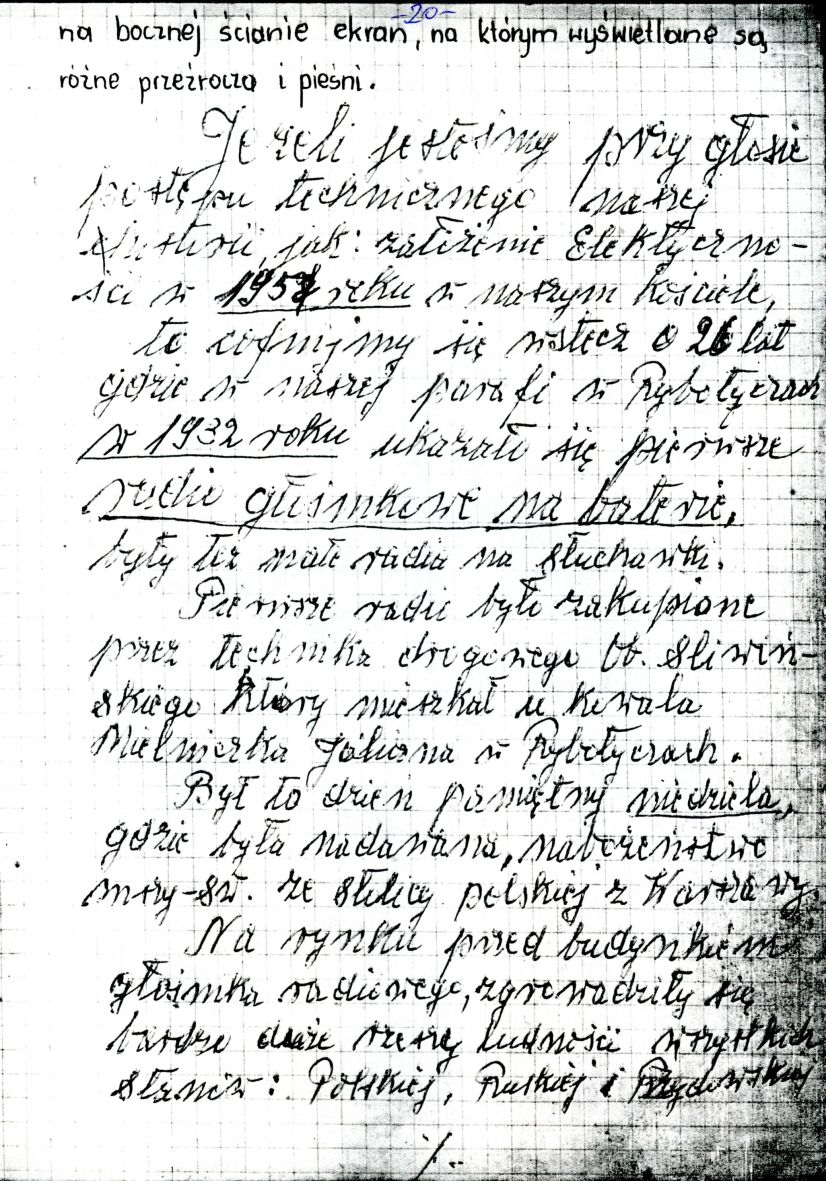 -20-
na bocznej ścianie ekran, na którym wyświetlane są
różne przeźrocza i pieśni.
Jeżeli jesteśmy przy głosie
postępu technicznego naszej
jak: założenie Elektryczno-
ści w 1958 roku w naszym kościele,
to cofnijmy się wstecz o 26 lat
gdzie w naszej parafi w Rybotyczach
w 1932 roku ukazało się pierwsze
radio głośnikowe na baterie,
były też małe radia na słuchawki.
Pierwsze radio było zakupione
przez technika drogowego Ob. Śliwiń-
skiego który mieszkał u kowala
Mielniczka Juliana w Rybotyczach.
Był to dzień pamiętny niedziela,
gdzie była nadawana, nabożeństwo
mszy-św. ze stolicy polskiej z Warszawy.
Na rynku przed budynkiem
głośnika radiowego, zgromadziły się
bardzo duże rzeszy ludności wszystkich
stanów: Polskiej, Ruskiej i Żydowskiej
./..